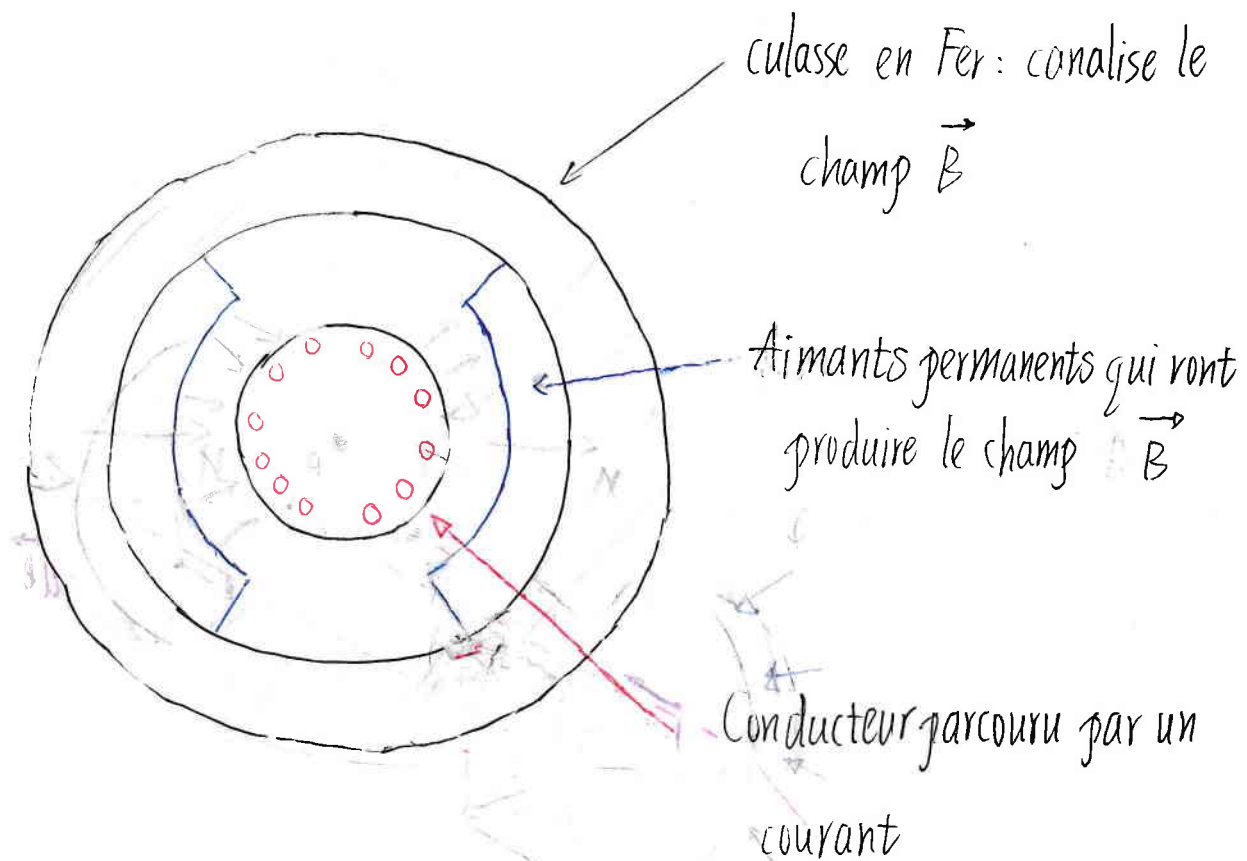 culasse en Fer : canalise le
champ B⃗
Aimants permanents qui vont
produire le champ B⃗
N
Conducteur parcouru par un
courant